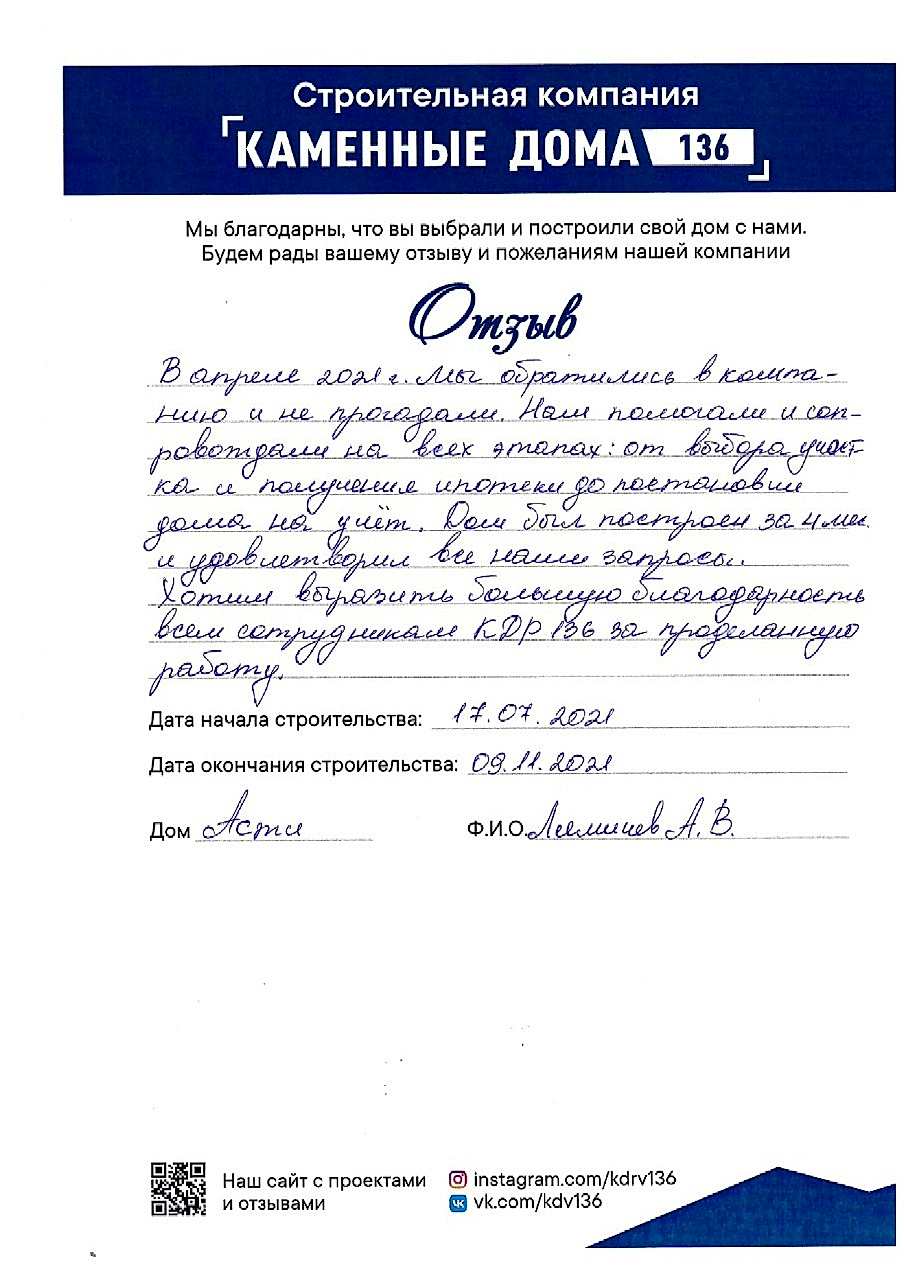 Строительная компания
КАМЕННЫЕ ДОМА 136
Мы благодарны, что вы выбрали и построили свой дом с нами.
Будем рады вашему отзыву и пожеланиям нашей компании
Отзыв
В апреле 2021 г. Мы обратились в компа-
нию и не прогадали. Нам помогали и соп-
ровождали на всех этапах: от выбора участ-
ка и получения ипотеки до постановки
дома на учёт. Дом был построен за 4 мес.
и удовлетворил все наши запросы.
Хотим выразить большую благодарность
всем сотрудникам КДР 136 за проделанную
работу.
Дата начала строительства: 17.07.2021
Дата окончания строительства: 09.11.2021
Дом Асти
Ф.И.О. А.В.
Наш сайт с проектами
и отзывами
instagram.com/kdrv136
vk.com/kdv136